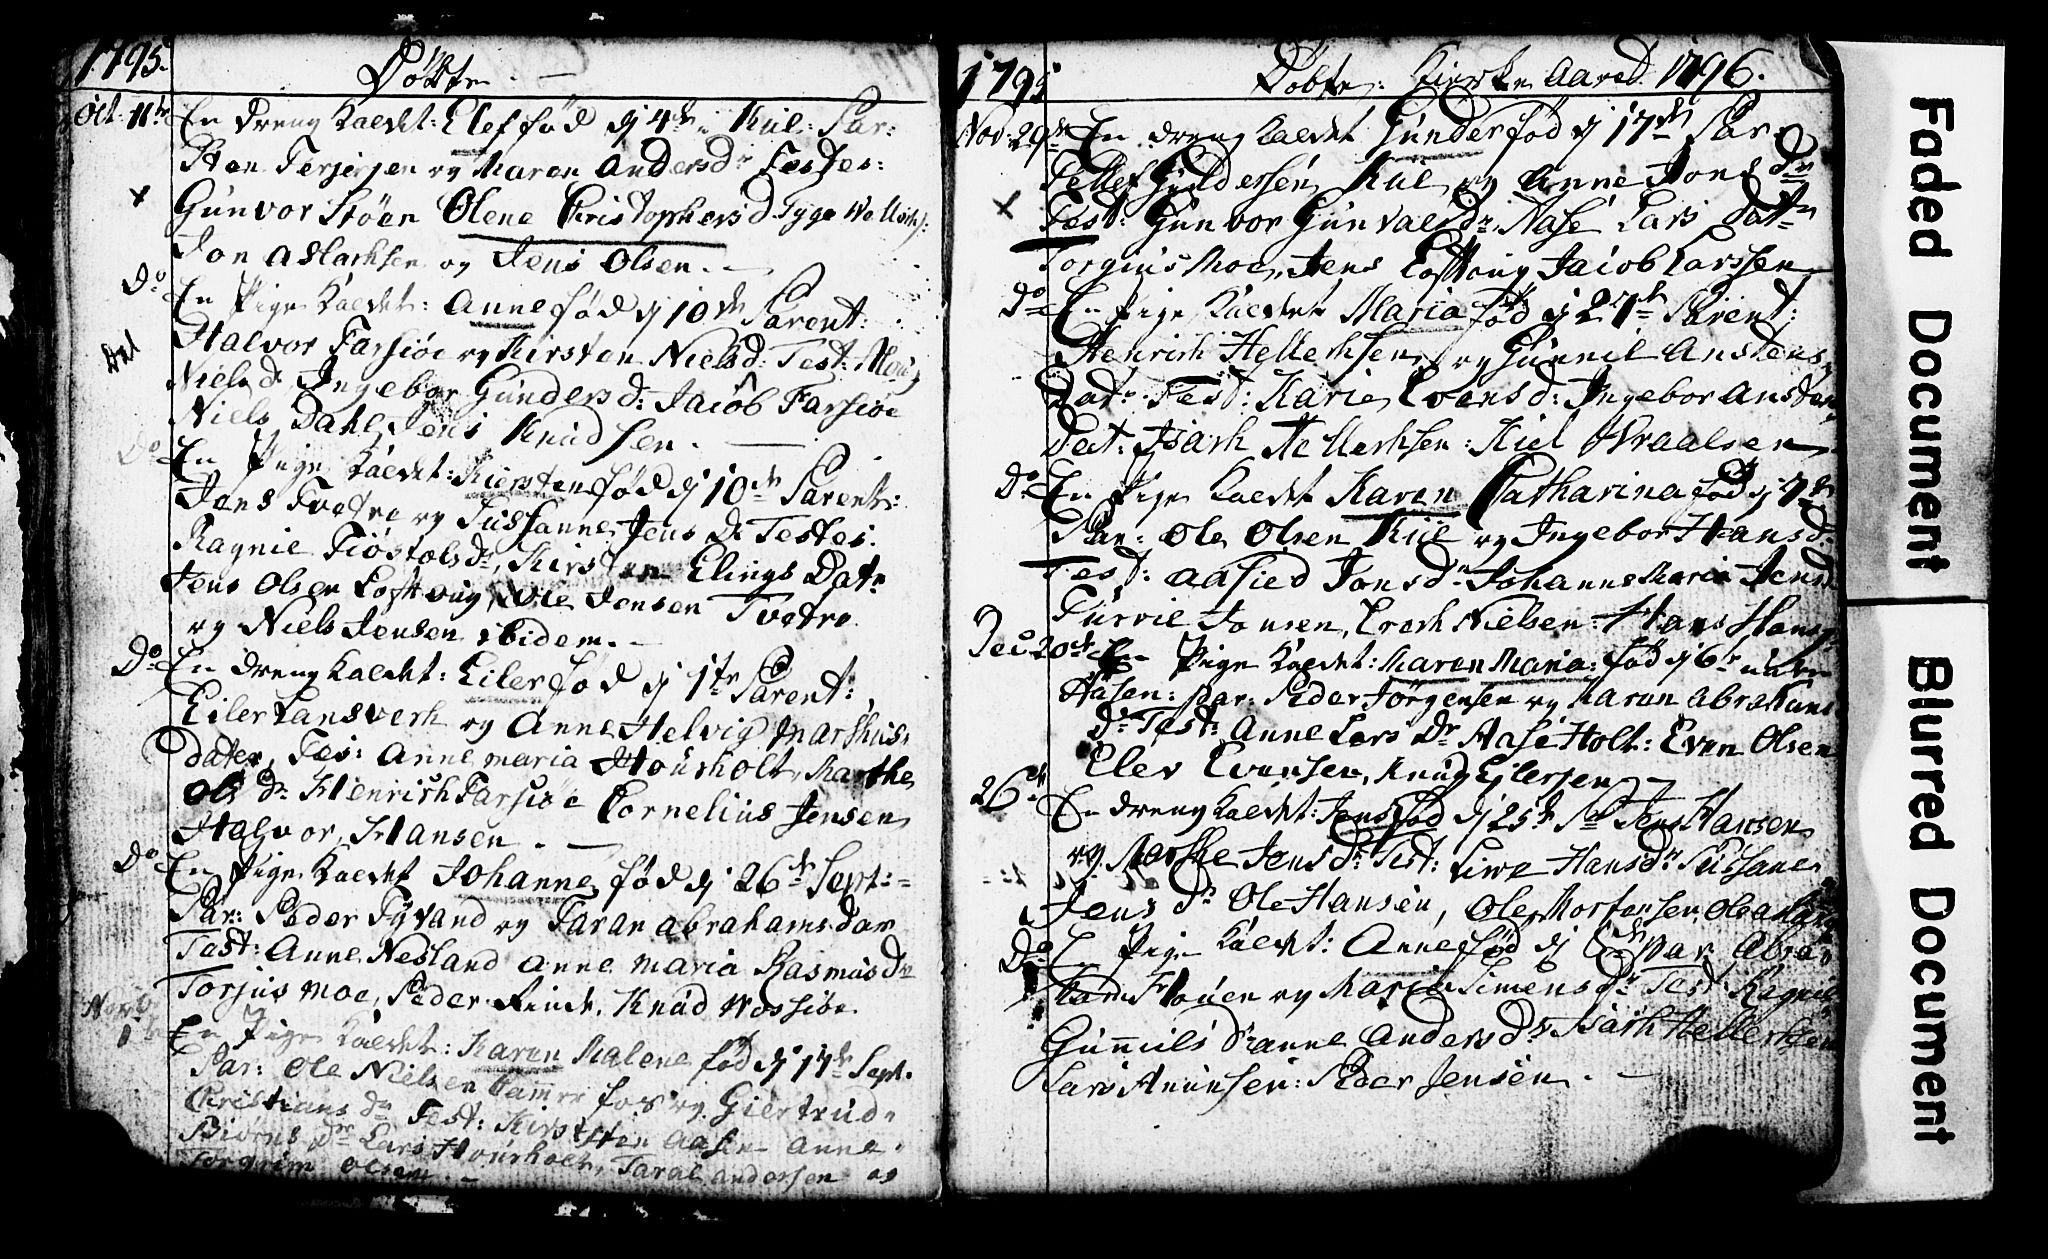 1795.
Döbte. —
Oct. 11te En dreng kaldet: Elef fød d 4de Kiil: Par:
Sten Terjesen og Maren Andersdr Testes:
Gunvor Støen Olene Christophersd Tyge
Jon Aslachsen og Jens Olsen. —
Do En Pige kaldet: Anne fød d 10de Parent:
Halvor Farsiøe og Kirsten Nielsd: Test:
Nielsd. Ingebor Gundersd: Jacob Farsiøe
Niels Dahl, Jens Knudsen. —
Do En Pige kaldet: Kiersten fød d 10de Parent:
Jens Tvetre og Sussanne Jens D. Testes:
Ragnie Fiøstolsdr, Kirsten Elings Datr
Jens Olsen Lofthoug, Ole Jensen Tvetre
og Niels Jensen ibidem. —
Do En dreng kaldet: Eiler fød d 1te Parent:
Eiler Lansverk og Anne Helvig Markus
dater, Tes: Anne Maria Housholt, Marthe
Ols dr Henrich Farsiøe Cornelius Jensen
Halvor Hansen. —
Do En Pige kaldet Johanne fød d 26de Sept:
Par: Peder Tÿvand og Taran Abrahamsdar
Test: Anne Nesland Anne Maria Rasmus Dr
Torjus Moe, Peder Rinde, Knud Vossiøe.
Novb 1te En Pige kaldet: Karen Malene fød d 17de Sept.
Par: Ole Nielsen Cammerfos og Giertrud
Christians dr Test: Kirsten Aasen Anne
Biørns dr Lars Housholt, Taral Andersen og
Torgrim Olsen. —
1795
Döbte: Kirke Aared. 1796.
Nov: 29de En dreng kaldet Gunder fød d 17de Par:
Tellef Gundersen Kiil og Anne Jons dr
Test: Gunvor Gunvalsdr, Aase Lars Datr
Torgius Moe, Jens Lofthoug Jacob Larssen
Do En Pige kaldet Maria fød d 27de Parent:
Henrich Hellerksen og Gunnil Anstens
Datr Test: Karie Evensd: Ingebor Ansten
Dat: Isach Hellerksen: Kiel Wraalsen
Do En Pige kaldet Karen Catharina fød d 7de
Par: Ole Olsen Kiil og Ingebor Hansd:
Test: Aasied Jonsdr Johanne Maria Jens
Gurvie Jonsen, Erech Nielsen Hans Hans
Dec 20de En Pige kaldet: Maren Maria: fød d 6te
Hasen: Par: Peder Jørgensen og Maren Abraham
Dr Test: Anne Lars Dr Aase Holt: Even Olsen
Elev Evensen, Knud Eilersen —
26de En dreng kaldet: Jens fød d 25de Par Jens Hansen
og Marthe Jensdr Test: Live Hansdr Sussane
Jens dr Ole Hansen, Ole Mortensen
Do En Pige kaldet: Anne fød d 6te Par: Abra
ham Flouen og Marie Simensdr Test: Ragnil
Gunnils dr Anne Andersdr Isach Hellerksen
Lars Anunsen: Peder Jensen. —
Faded Document
Blurred Document